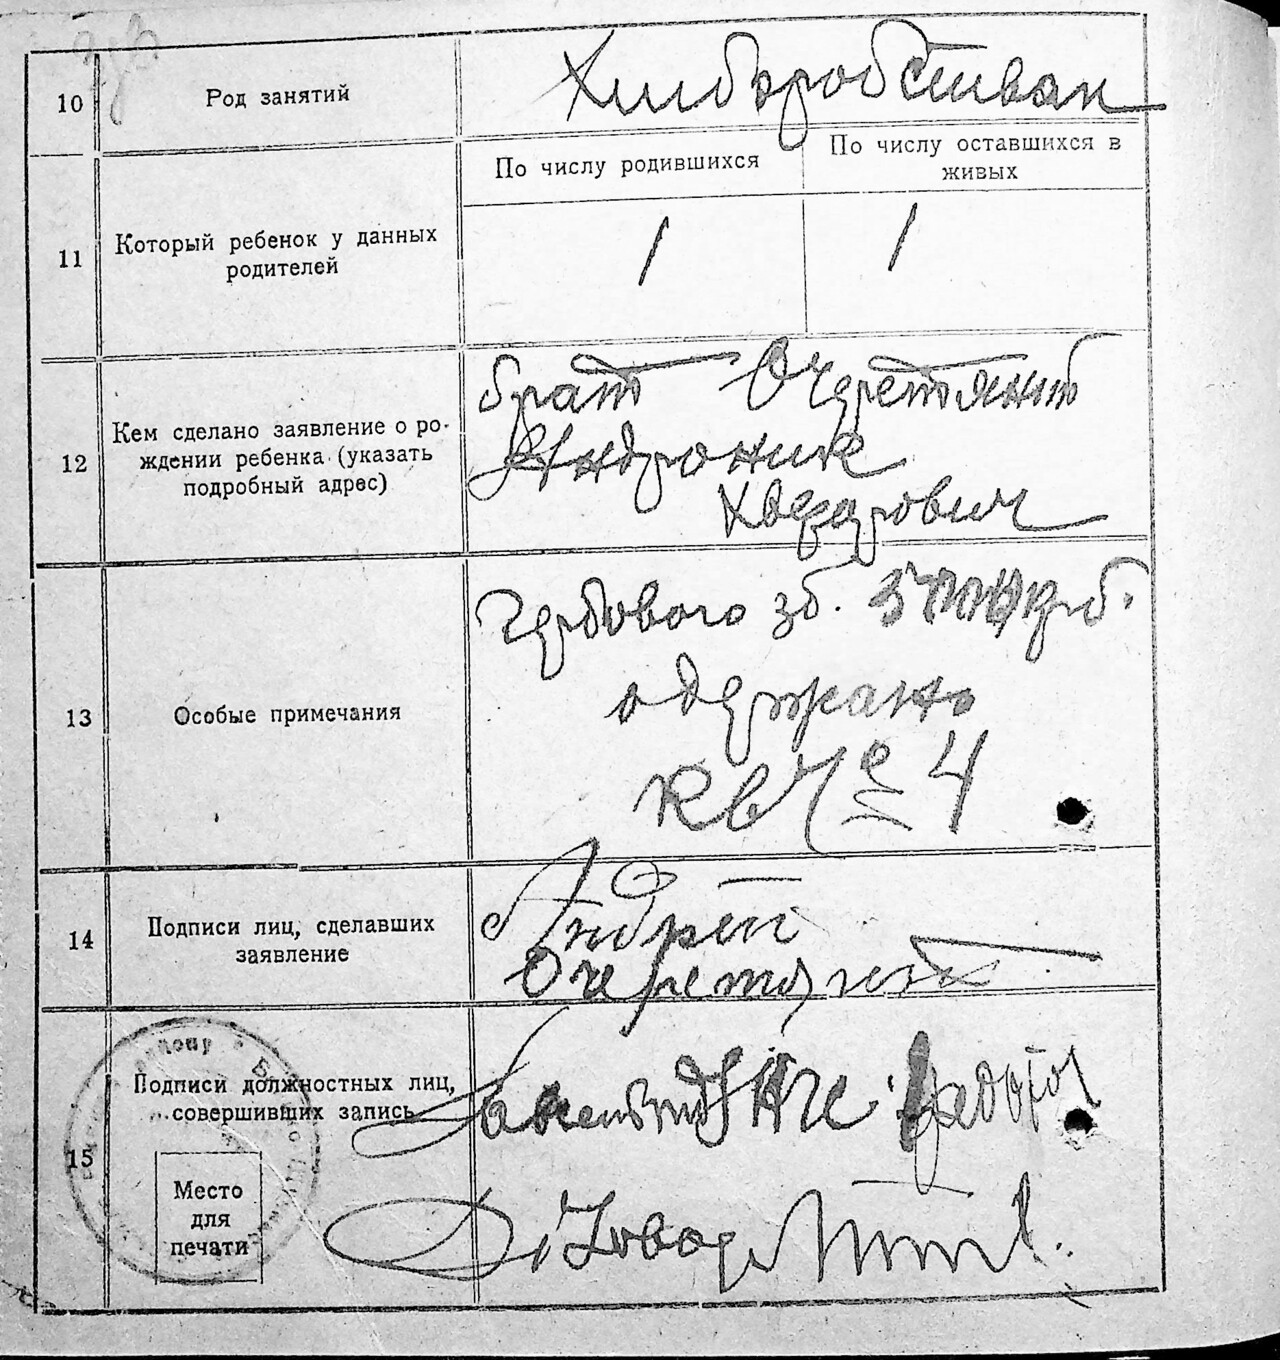 10
Род занятий
Хлиборобстван
11
Который ребенок у данных
родителей
По числу родившихся
По числу оставшихся в
живых
1
1
12
Кем сделано заявление о ро-
ждении ребенка (указать
подробный адрес)
брат Очеретяный
Андроник
13
Особые примечания
Гербового зб. крб.
одержано
кв № 4
14
Подписи лиц, сделавших
заявление
Андрей
Очеретяный
15
Подписи должностных лиц,
совершивших запись
Место
для
печати